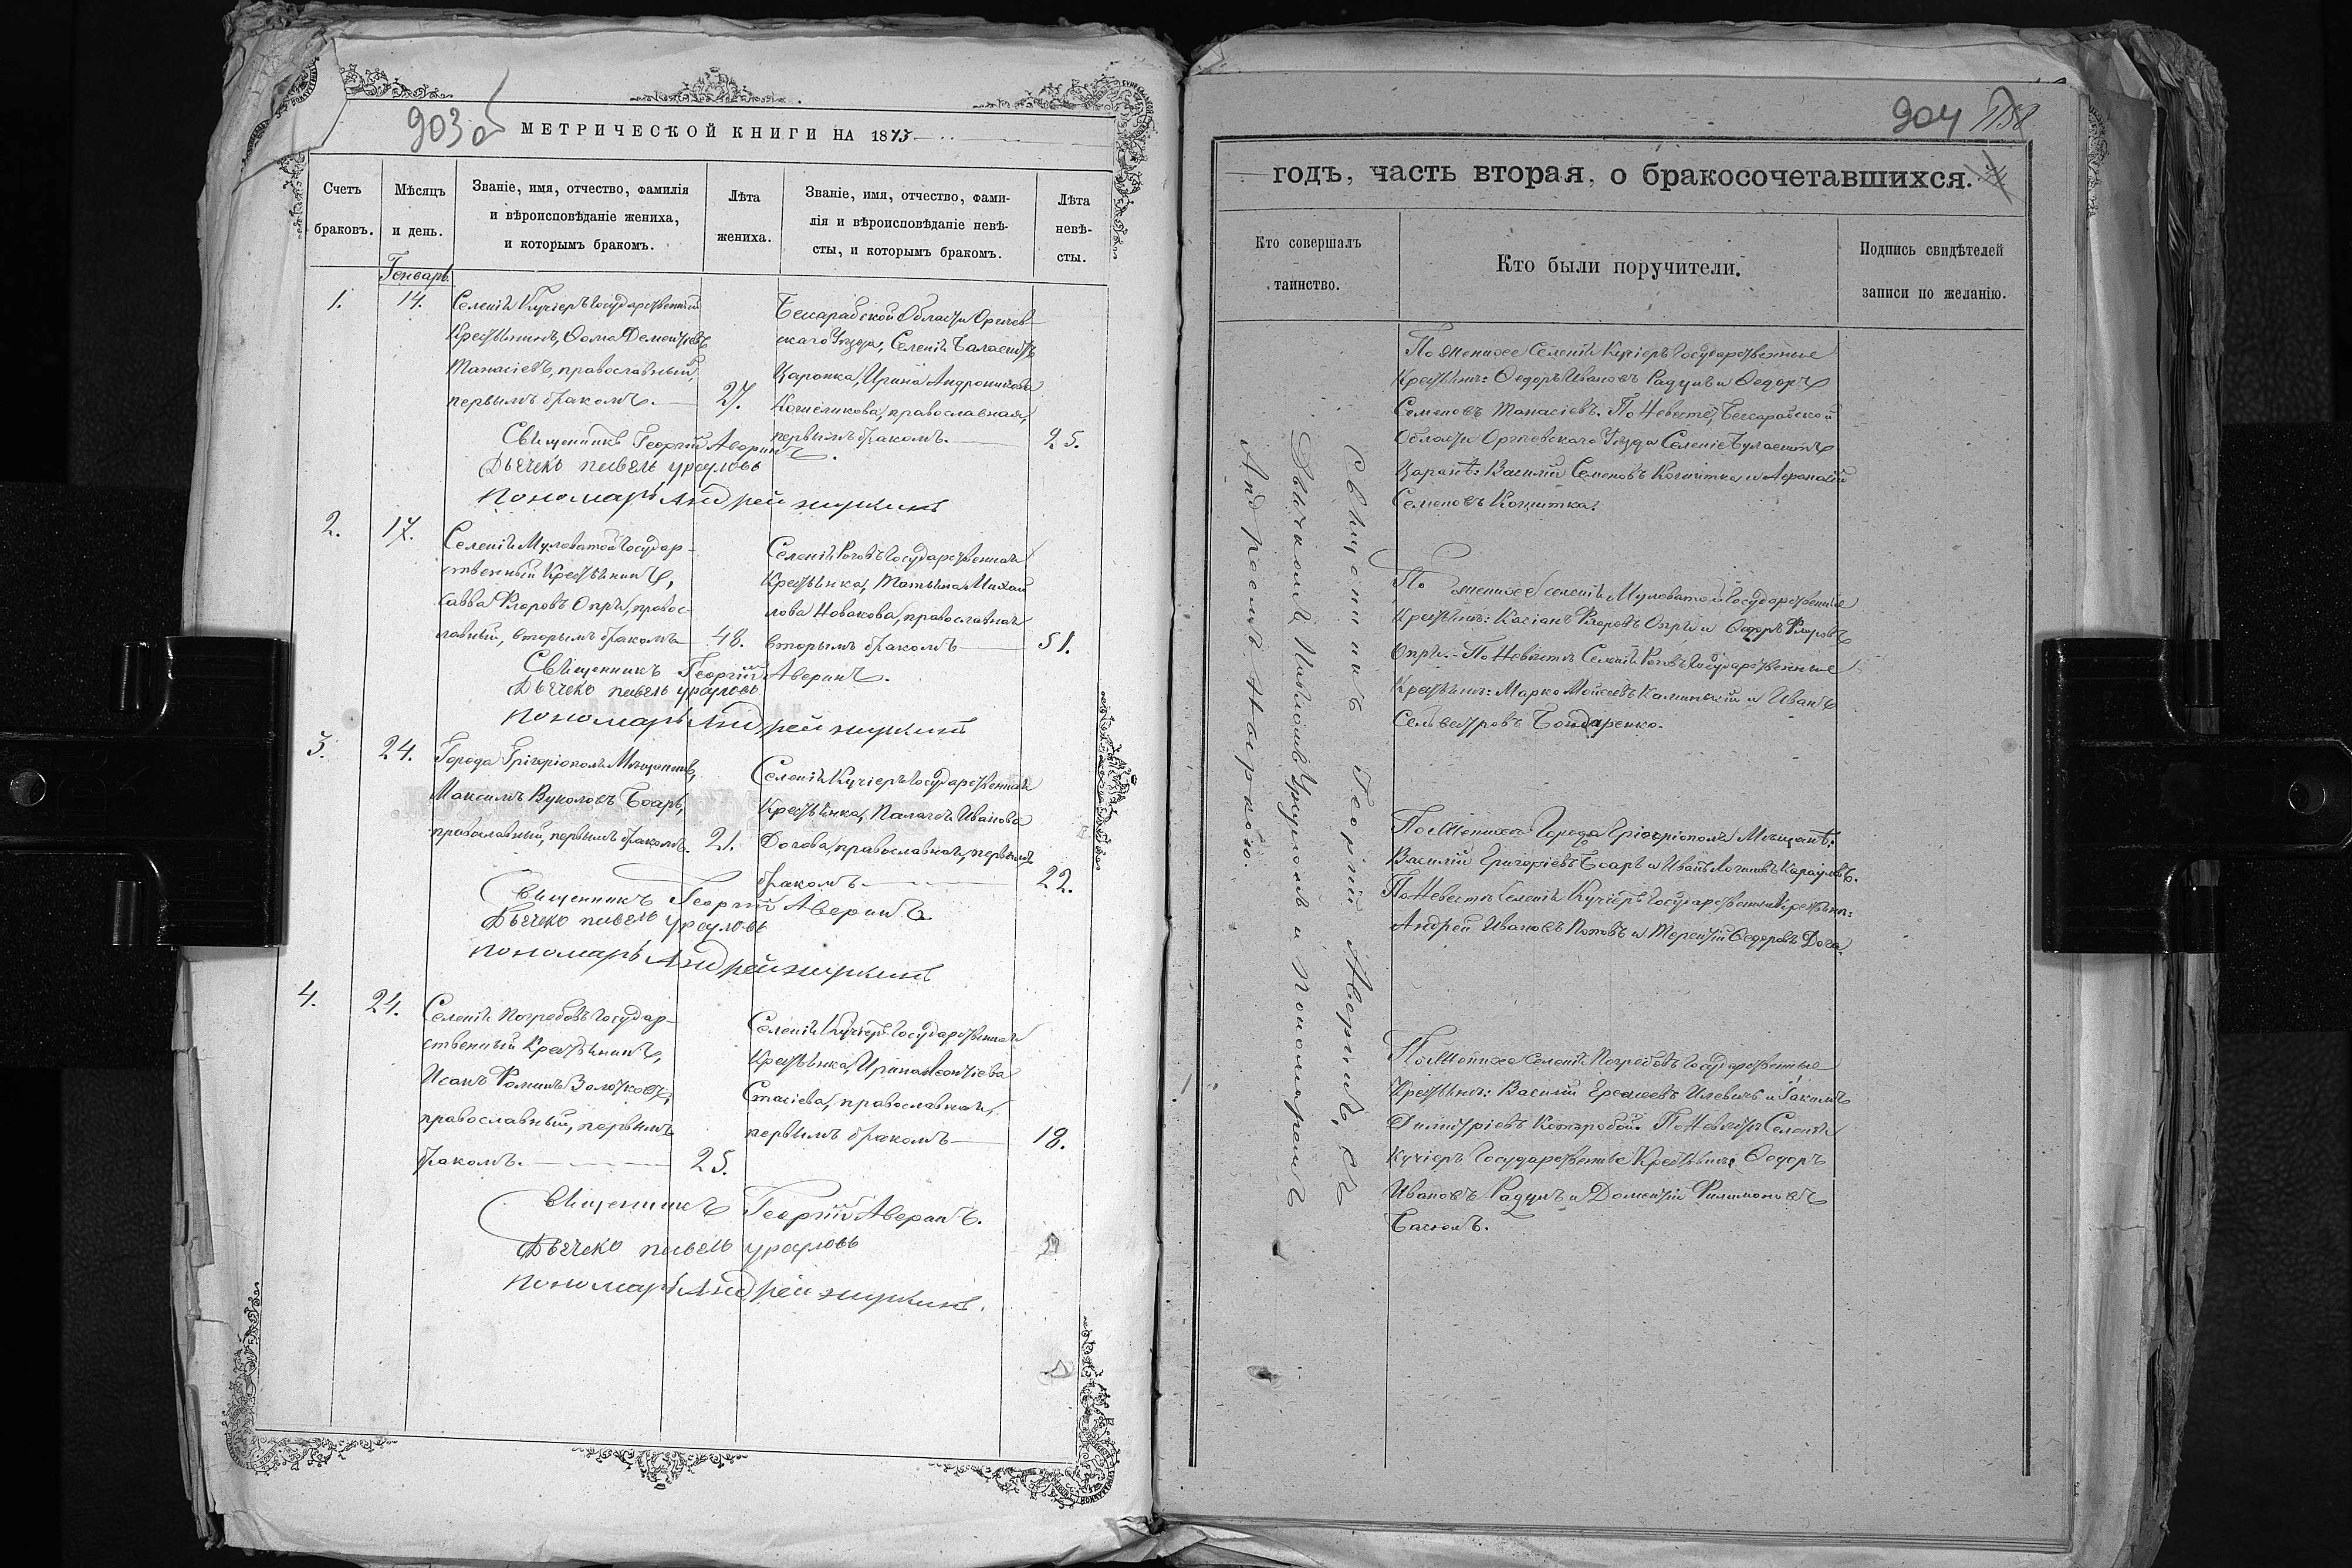 903 об
МЕТРИЧЕСКОЙ КНИГИ НА 1875
Счетъ
браковъ.
Мѣсяцъ
и день.
Званіе, имя, отчество, фамилія
и вѣроисповѣданіе жениха,
и которымъ бракомъ.
Лѣта
жениха.
Званіе, имя, отчество, фами-
лія и вѣроисповѣданіе невѣ-
сты, и которымъ бракомъ.
Лѣта
невѣ-
сты.
Генварь
1.
14.
Селенія Кучіеръ Государственный
Крестьянинъ, Ѳома Дементіевъ
Танасіевъ, православный,
первымъ бракомъ.
27.
Бессарабской Области Оргеев-
скаго Уѣзда, Селенія
Царанка, Ирина Андроникова
православная,
первымъ бракомъ.
25.
Священникъ Георгій Аверинъ
Дьячекъ Павелъ Урсуловъ
Пономарь Андрей
2.
17.
Селенія Муловатой Государ-
ственный Крестьянинъ,
Савва Флоровъ Опря, правос-
лавный, вторымъ бракомъ
48.
Селенія Роговъ Государственная
Крестьянка, Татьяна Михай
лова Новакова, православная
вторымъ бракомъ
51.
Священникъ Георгій Аверинъ.
Дьячекъ Павелъ Урсуловъ
Пономарь Андрей
3.
24.
Города Григоріополя Мѣщанинъ,
Максимъ Вуколовъ Боаръ,
православный, первымъ бракомъ.
21.
Селенія Кучіеръ Государственная
Крестьянка, Палагея Иванова
Догова, православная, первымъ
бракомъ
22.
Священникъ Георгій Аверинъ
Дьячекъ Павелъ Урсуловъ
Пономарь Андрей
4.
24.
Селенія Погребовъ Государ-
ственный Крестьянинъ,
Исакъ Фоминъ
православный, первымъ
бракомъ.
25.
Селенія Кучіеръ Государственная
Крестьянка, Ирина Леонтіева
Стасіева, православная,
первымъ бракомъ
18.
Священникъ Георгій Аверинъ.
Дьячекъ Павелъ Урсуловъ
Пономарь Андрей
904
годъ, часть вторая, о бракосочетавшихся.
Кто совершалъ
таинство.
Кто были поручители.
Подпись свидѣтелей
записи по желанію.
Священникъ Георгій Аверинъ, съ
Дьячкомъ Павломъ Урсуломъ и пономаремъ
Андреемъ
По женихѣ Селенія Кучіеръ Государственные
Крестьяне: Ѳедоръ Ивановъ Радулъ и Ѳедоръ
Семеновъ Танасіевъ. По Невѣстѣ, Бессарабской
Области Оргѣевскаго Уѣзда Селенія
Царане: Василій Семеновъ и Аѳанасій
Семеновъ
По женихѣ селенія Муловатой Государственные
Крестьяне: Касіанъ Флоровъ Опря и Ѳедоръ Флоровъ
Опря. По Невѣстѣ Селенія Роговъ Государственные
Крестьяне: Марко Моисеевъ Калинскій и Иванъ
Селвестровъ Бондаренко.
По Женихѣ Города Григоріополя Мѣщане:
Василій Григоріевъ Боаръ и Иванъ Логиновъ Карауловъ.
По Невѣстѣ Селенія Кучіеръ Государственные Крестьяне:
Андрей Ивановъ Поповъ и Терентій Ѳедоровъ Дога.
По Женихѣ Селенія Погребовъ Государственные
Крестьяне: Василій и Іаковъ
Димитріевъ По Невѣстѣ Селенія
Кучіеръ Государственные Крестьяне Ѳедоръ
Ивановъ Радулъ и Доментій Филимоновъ